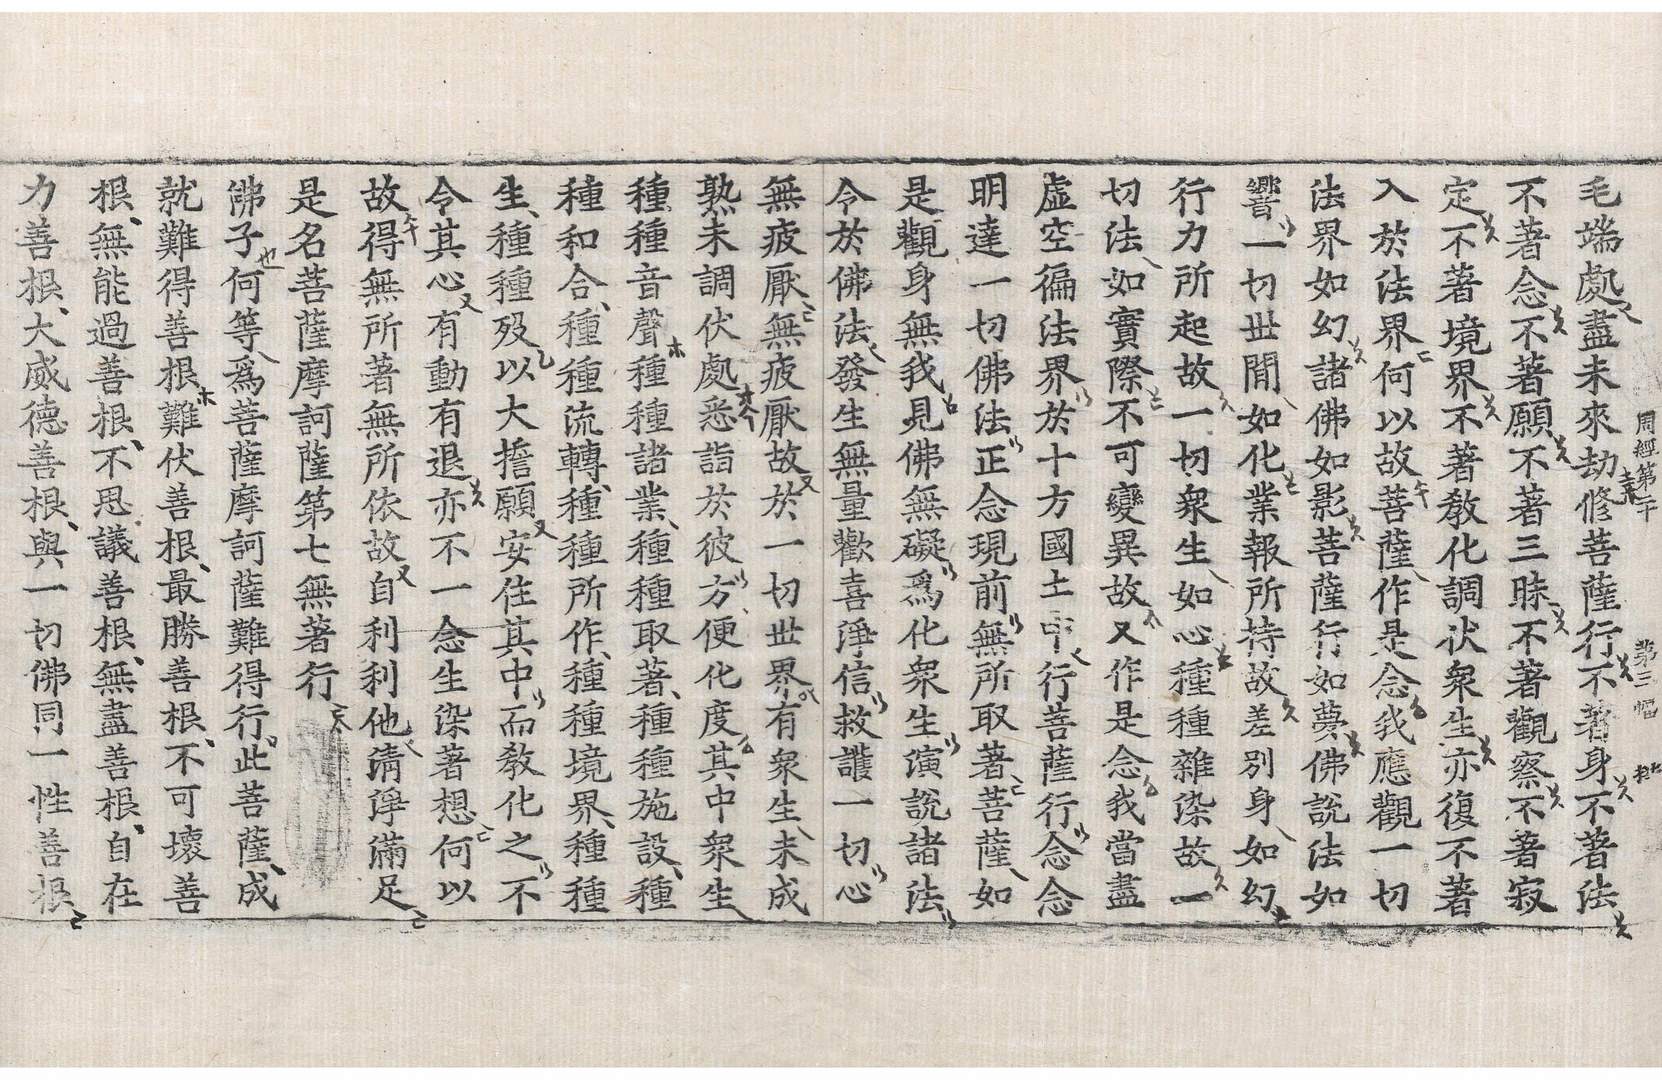 周經第二十 第三幅
毛端處盡未來劫修菩薩行不著身不著法
不著念不著願不著三昧不著觀察不著寂
定不著境界不著教化調伏衆生亦復不著
入於法界何以故菩薩作是念我應觀一切
法界如幻諸佛如影菩薩行如夢佛說法如
響一切世間如化業報所持故差別身如幻
行力所起故一切衆生如心種種雜染故一
切法如實際不可變異故又作是念我當盡
虛空徧法界於十方國土中行菩薩行念念
明達一切佛法正念現前無所取著菩薩如
是觀身無我見佛無礙爲化衆生演說諸法
令於佛法發生無量歡喜淨信救護一切心
無疲厭無疲厭故於一切世界有衆生未成
熟未調伏處悉詣於彼方便化度其中衆生
種種音聲種種諸業種種取著種種施設種
種和合種種流轉種種所作種種境界種種
生種種殁以大誓願安住其中而教化之不
令其心有動有退亦不一念生染著想何以
故得無所著無所依故自利利他清淨滿足
是名菩薩摩訶薩第七無著行
佛子何等爲菩薩摩訶薩難得行此菩薩成
就難得善根難伏善根最勝善根不可壞善
根無能過善根不思議善根無盡善根自在
力善根大威德善根與一切佛同一性善根